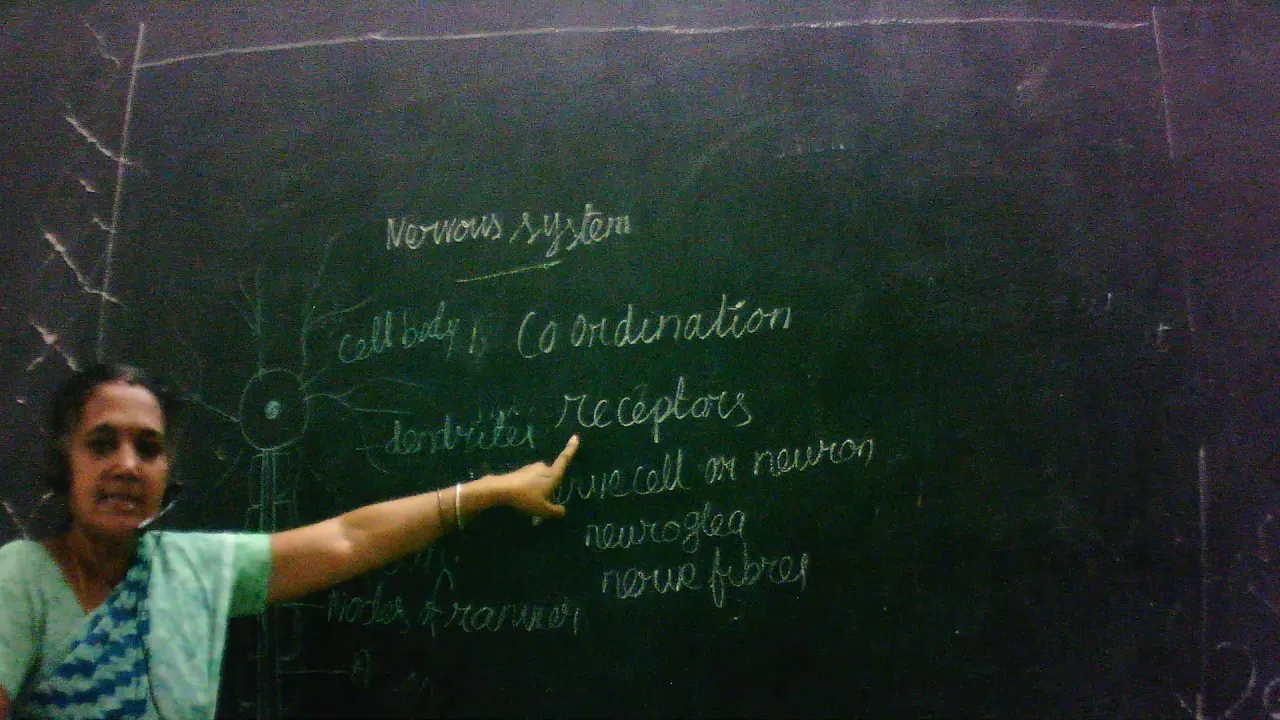 Nervous system
cell body Coordination
dendrites receptors
cell or neuron
neuroglea
nerve fibres
nodes of ranvier